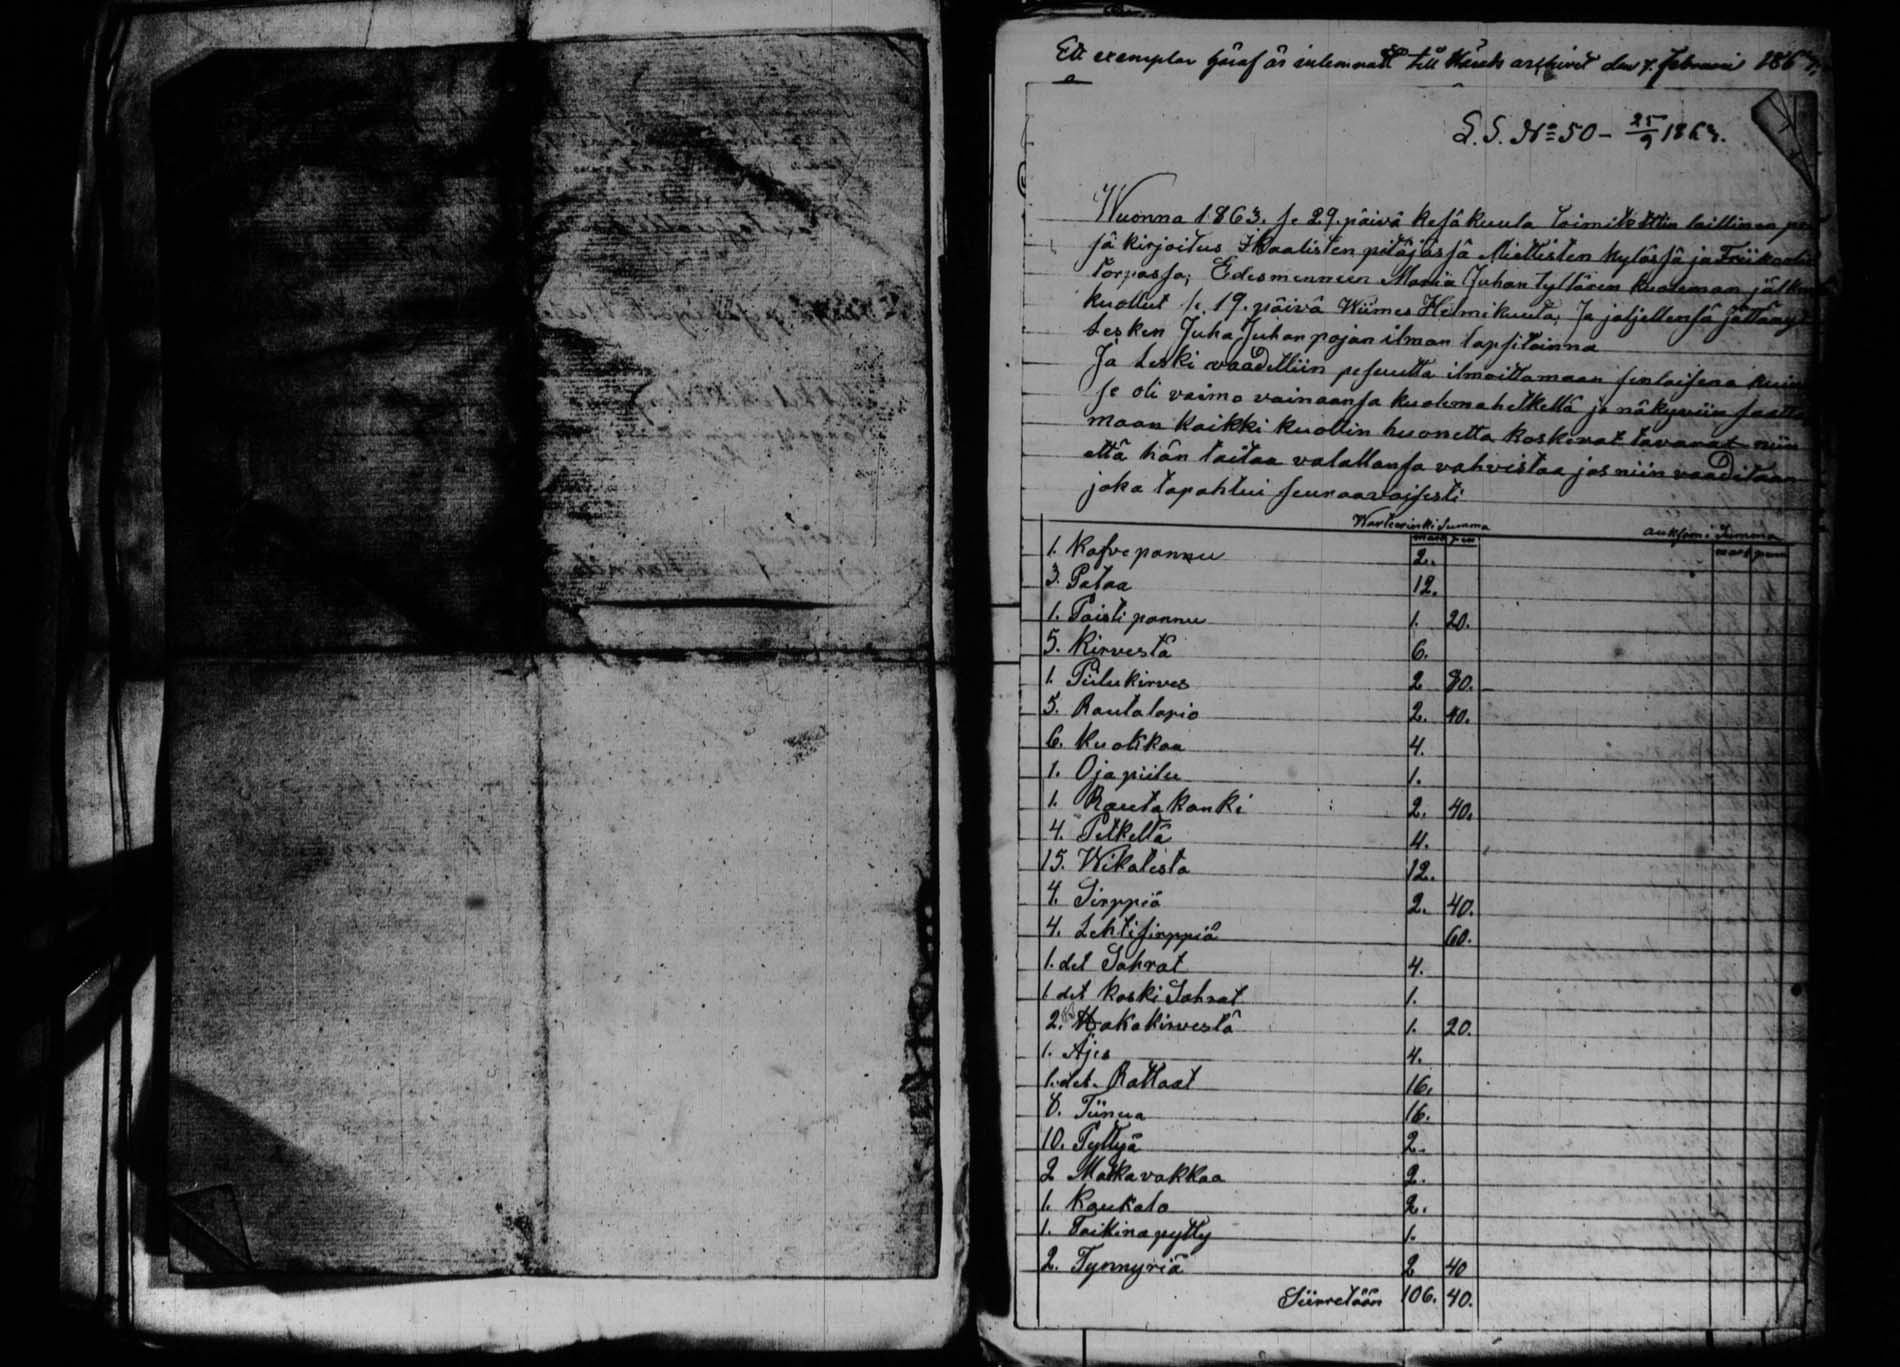 Ett exemplar häraf är inlemnadt till Härads arkivet den 7. februari 186
L. S. No 50 – 25/9 1863.
Wuonna 1863. se 29. päivä kesäkuuta toimitettiin laillinen
sä kirjoitus Ikaalisten pitäjässä Miettisten kylässä ja
torpassa; Edesmenneen Maria Juhan tyttären kuoleman jälkeen
kuollut se. 19. päivä Wiimes Helmikuuta; Ja jäljellensä jättänyt
Lesken Juha Juhanpojan ilman lapsitoinna
Ja Leski vaadittiin pesuutta ilmoittamaan senlaisena kuin
se oli vaimo vainaansa kuolemahetkellä ja näkyviin saatta
maan kaikki kuollin huonetta koskevat tavarat niin
että hän taitaa valallansa vahvistaa jos niin vaaditaan
joka tapahtui seuraavaisesti
Warteerinki Summa auksooni Summa
mark pen mark penni
1. Kafvepannu 2.
3. Pataa 12.
1. Paisti pannu 1. 20.
5. Kirvestä 6.
1. Piilukirves 2 80.
5. Rautalapio 2. 40.
6. Kuokkaa 4.
1. Ojapiilu 1.
1. Rautakanki 2. 40.
4. Petkeltä 4.
15. Wikatista 12.
4. Sirppiä 2. 40.
4. Lehtisirppiä 60.
1. det Sahrat 4.
1 det Koski Sahrat 1.
2. Hakokirvestä 1. 20.
1. Äjes 4.
1. det. Rattaat 16.
8. Tiinua 16.
10. Pyttyä 2.
2 Matkavakkaa 2.
1. Kaukalo 2.
1. Taikinapytty 1.
2. Tynnyriä 2 40
Siirretään 106. 40.